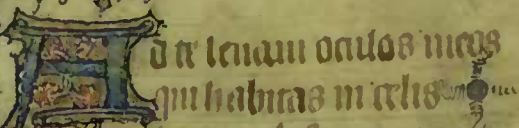 Ad te leuaui oculos meos
qui habitas in celis